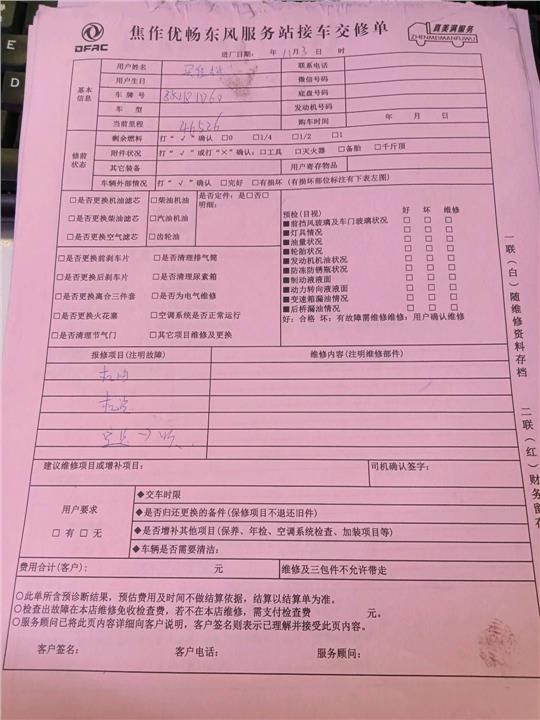 DFAC
焦作优畅东风服务站接车交修单
真美满服务
ZHENMEIMANFUWU
进厂日期： 年 11月3日 时
基本信息
用户姓名 联系电话
用户生日 微信号码
车牌号 底盘号码
车型 发动机号码
当前里程 46526 购车时间 年 月 日
修前状态
剩余燃料 打“√”确认 □0 □1/4 □1/2 □1
附件状况 打“√”或打“×”确认：□工具 □灭火器 □备胎 □千斤顶
其它装备 用户寄存物品
车辆外部情况 打“√”确认 □完好 □有损坏（有损坏部位标注有下表左图）
□是否更换机油滤芯 □柴油机油
□是否更换柴油滤芯 □汽油机油
□是否更换空气滤芯 □齿轮油
是否定件：是□否□
明细：
□是否更换前刹车片 □是否清理排气筒
□是否更换后刹车片 □是否清理尿素箱
□是否更换离合三件套 □是否为电气维修
□是否更换火花塞 □空调系统是否正常运行
□是否清理节气门 □其它项目维修及更换
预检(目视) 好 坏 维修
■前挡风玻璃及车门玻璃状况 □ □ □
■灯具情况 □ □ □
■油量状况 □ □ □
■轮胎状况 □ □ □
■发动机机油状况 □ □ □
■防冻防锈瓶状况 □ □ □
■制动液液面 □ □ □
■动力转向液液面 □ □ □
■变速箱漏油情况 □ □ □
■后桥漏油情况 □ □ □
好：合格 坏：有故障需维修维修：用户确认维修
报修项目(注明故障) 维修内容(注明维修部件)
建议维修项目或增补项目： 司机确认签字：
用户要求
□有 □无
◆交车时限
◆是否归还更换的备件(保修项目不退还旧件)
◆是否增补其他项目(保养、年检、空调系统检查、加装项目等)
◆车辆是否需要清洁：
费用合计(客户)： 元 维修及三包件不允许带走
○此单所含预诊断结果，预估费用及时间不做结算依据，结算以结算单为准。
○检查出故障在本店维修免收检查费，若不在本店维修，需支付检查费 元。
○服务顾问已将此页内容详细向客户说明，客户签名则表示已理解并接受此页内容。
客户签名： 客户电话： 服务顾问：
一联(白)随维修资料存档
二联(红)财务留存